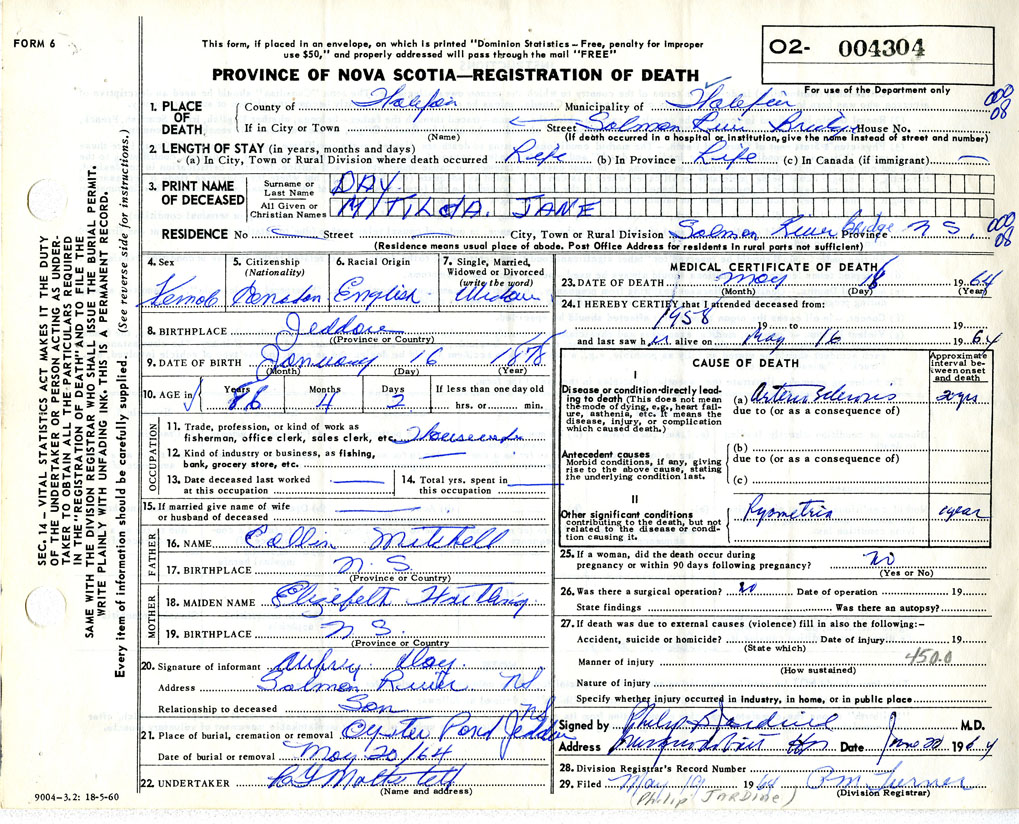 FORM 6
This form, if placed in an envelope, on which is printed "Dominion Statistics – Free, penalty for improper
use $50," and properly addressed will pass through the mail "FREE"
02- 004304
For use of the Department only
PROVINCE OF NOVA SCOTIA—REGISTRATION OF DEATH
1. PLACE OF DEATH { County of Halifax Municipality of Halifax 000 08
If in City or Town (Name) Street Salmon River Bridge House No.
(If death occurred in a hospital or institution, give the name instead of street and number)
2. LENGTH OF STAY (in years, months and days)
(a) In City, Town or Rural Division where death occurred Life (b) In Province Life (c) In Canada (if immigrant) —
3. PRINT NAME OF DECEASED
Surname or Last Name DAY
All Given or Christian Names MITILDA. JANE
RESIDENCE No Street City, Town or Rural Division Salmon River Bridge Province N S. 000 08
(Residence means usual place of abode. Post Office Address for residents in rural parts not sufficient)
4. Sex Female
5. Citizenship (Nationality) Canadian
6. Racial Origin English
7. Single, Married, Widowed or Divorced (write the word) Widow
8. BIRTHPLACE Jeddore
(Province or Country)
9. DATE OF BIRTH January 16 1878
(Month) (Day) (Year)
10. AGE in Years 86 Months 4 Days 2 If less than one day old hrs. or min.
OCCUPATION
11. Trade, profession, or kind of work as
fisherman, office clerk, sales clerk, etc. Housework
12. Kind of industry or business, as fishing,
bank, grocery store, etc. —
13. Date deceased last worked
at this occupation —
14. Total yrs. spent in
this occupation —
15. If married give name of wife
or husband of deceased —
FATHER
16. NAME Collin Mitchell
17. BIRTHPLACE N. S.
(Province or Country)
MOTHER
18. MAIDEN NAME Elizebeth
19. BIRTHPLACE N S
(Province or Country)
20. Signature of informant Aubrey Day
Address Salmon River NS
Relationship to deceased Son
21. Place of burial, cremation or removal Oyster Pond Jeddore NS
Date of burial or removal May 20/64
22. UNDERTAKER
(Name and address)
MEDICAL CERTIFICATE OF DEATH
23. DATE OF DEATH May 18 1964
(Month) (Day) (Year)
24. I HEREBY CERTIFY that I attended deceased from:
1958 19 to 19
and last saw her alive on May 16 1964
CAUSE OF DEATH
Approximate interval between onset and death
I
Disease or condition directly leading to death (This does not mean the mode of dying, e.g., heart failure, asthenia, etc. It means the disease, injury, or complication which caused death.)
(a) Arterio Sclerosis 20 yrs
due to (or as a consequence of)
Antecedent causes
Morbid conditions, if any, giving rise to the above cause, stating the underlying condition last.
(b)
due to (or as a consequence of)
(c)
II
Other significant conditions
contributing to the death, but not related to the disease or condition causing it.
Pyometria 1 year
25. If a woman, did the death occur during
pregnancy or within 90 days following pregnancy? No
(Yes or No)
26. Was there a surgical operation? No Date of operation 19
State findings Was there an autopsy?
27. If death was due to external causes (violence) fill in also the following:–
Accident, suicide or homicide? Date of injury 19
(State which)
Manner of injury 450.0
(How sustained)
Nature of injury
Specify whether injury occurred in industry, in home, or in public place
Signed by Philip Jardine M.D.
Address Musquodoboit Hbr Date June 22 1964
28. Division Registrar's Record Number
29. Filed May 19 1964 Turner
(Division Registrar)
(Philip JARDINE)
SEC. 14 – VITAL STATISTICS ACT MAKES IT THE DUTY
OF THE UNDERTAKER OR PERSON ACTING AS UNDER-
TAKER TO OBTAIN ALL THE PARTICULARS REQUIRED
IN THE "REGISTRATION OF DEATH" AND TO FILE THE
SAME WITH THE DIVISION REGISTRAR WHO SHALL ISSUE THE BURIAL PERMIT.
WRITE PLAINLY WITH UNFADING INK. THIS IS A PERMANENT RECORD.
Every item of information should be carefully supplied. (See reverse side for instructions.)
9004-3.2: 18-5-60